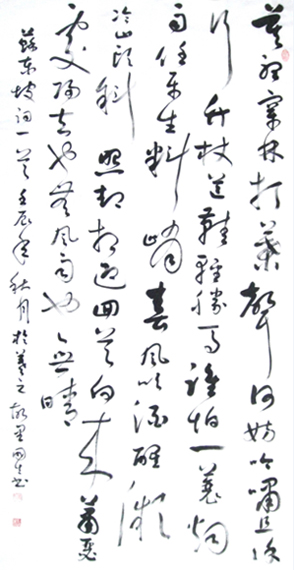 莫聽穿林打葉聲何妨吟嘯且徐
行竹杖芒鞋輕勝馬誰怕一蓑烟
雨任平生料峭春風吹酒醒微
冷山頭斜照却相迎回首向来蕭瑟
處歸去也無風雨也無晴
蘇東坡詞一首壬辰年秋月於羲之故里国生書